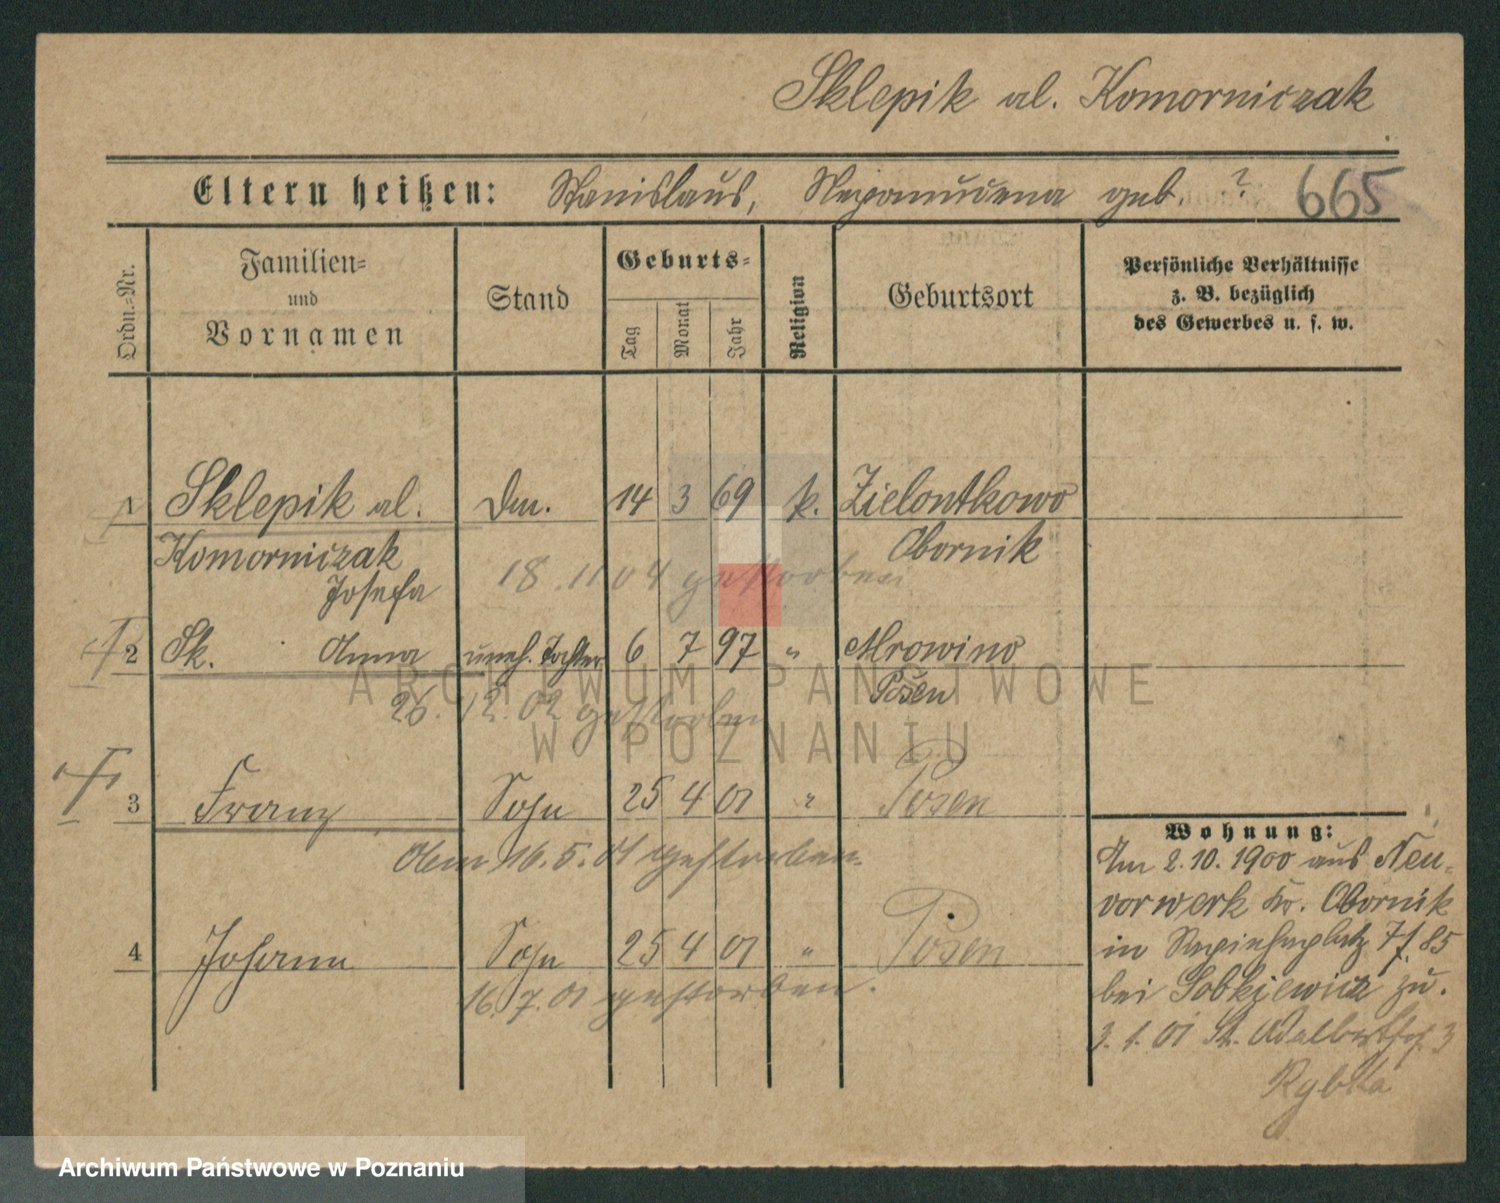 Sklepik al. Komorniczak
Eltern heißen: Stanislaus, Nepomucena geb. ? 665
Ordn.=Nr.
Familien=
und
Vornamen
Stand
Geburts=
Tag
Monat
Jahr
Religion
Geburtsort
Persönliche Verhältnisse
z. B. bezüglich
des Gewerbes u. s. w.
1 Sklepik al. Dm. 14 3 69 k. Zielontkowo
Komorniczak Obornik
Josefa 18.11 04 gestorben
2 Sk. Anna uneh. Tochter 6 7 97 " Mrowino
Posen
26.12.02 gestorben
3 Franz Sohn 25 4 01 " Posen
16.5.01 gestorben.
4 Johann Sohn 25 4 01 " Posen
16.7.01 gestorben.
Wohnung:
Am 2.10.1900 aus Neu-
vorwerk Kr. Obornik
in 7 f. 85
bei Sobkiewicz zu.
3.1.01 St. Adalbertstr. 3
Rybka
ARCHIWUM PAŃSTWOWE
W POZNANIU
Archiwum Państwowe w Poznaniu